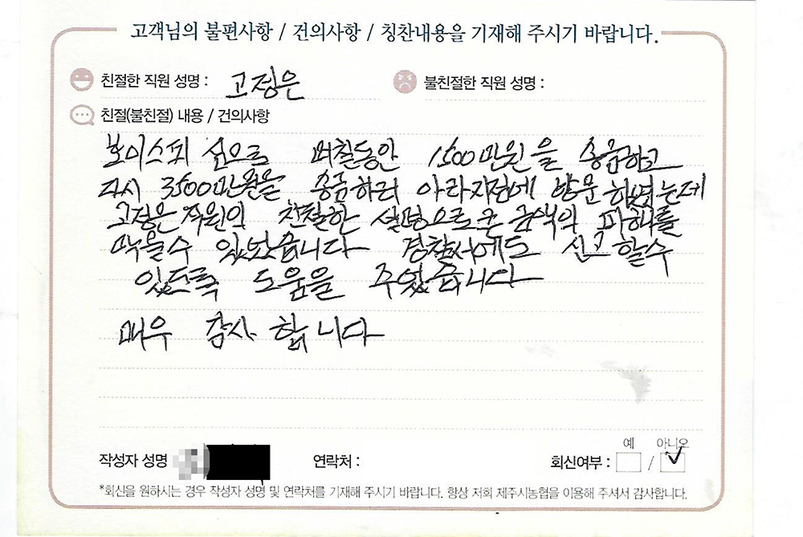 고객님의 불편사항 / 건의사항 / 칭찬내용을 기재해 주시기 바랍니다.
친절한 직원 성명 : 고정은 불친절한 직원 성명 :
친절(불친절) 내용 / 건의사항
보이스피싱으로 며칠동안 1500만원을 송금하고
다시 3500만원을 송금하러 아라지점에 방문하였는데
고정은 직원의 친절한 설명으로 큰 금액의 피해를
막을수 있었습니다 경찰서에도 신고할수
있도록 도움을 주었습니다
매우 감사 합니다
작성자 성명 연락처 : 회신여부 : 예 / 아니오
*회신을 원하시는 경우 작성자 성명 및 연락처를 기재해 주시기 바랍니다. 항상 저희 제주시농협을 이용해 주셔서 감사합니다.